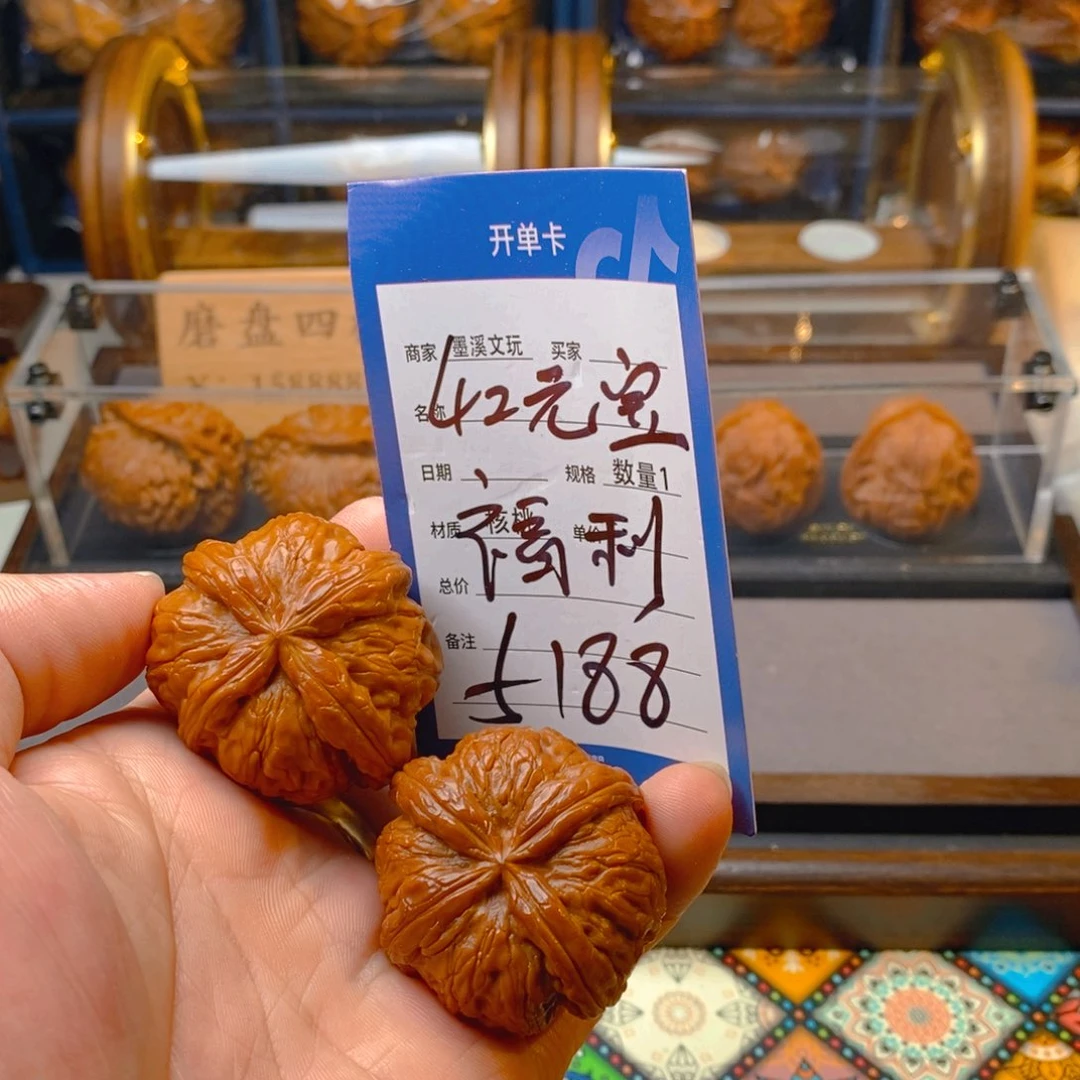 开单卡
商家 墨溪文玩 买家
名称
42元宝
日期 规格 数量1
材质 核桃 单价
福利
总价
备注
5188
磨盘四